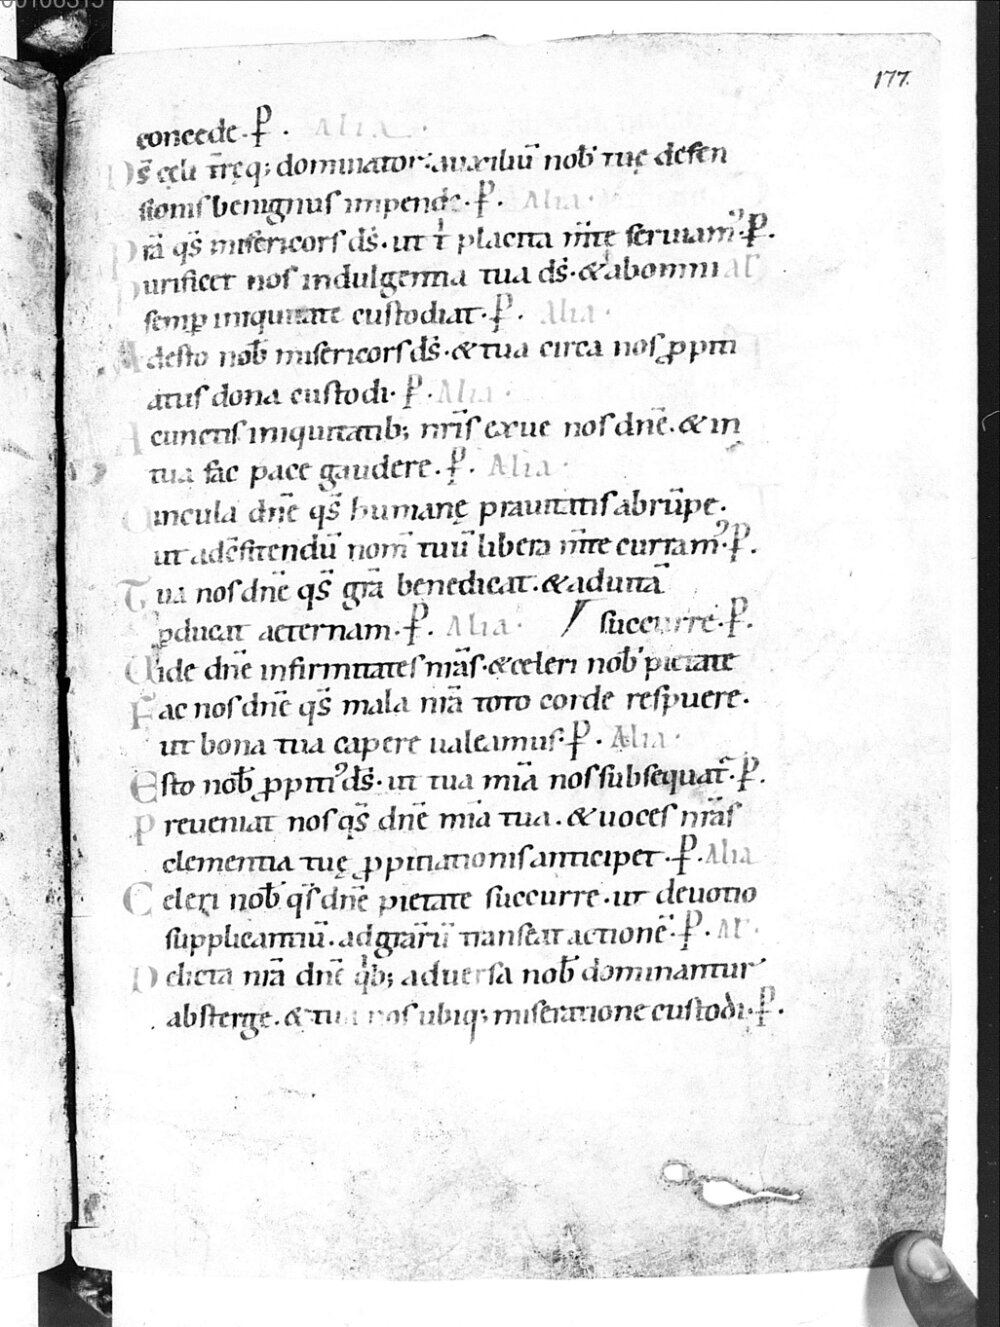 00106315
177.
concede· ꝑ· Alia·
Ds̄ cęli t̄ręq; dominator· auxiliū nob̄ tuę defen
sionis benignus impende· ꝑ· Alia·
Prā qs̄ misericors ds̄· ut t̄ placita m̄te seruiam᷒· ꝑ·
Purificet nos indulgentia tua ds̄· & ab omni al
semꝑ iniquitate custodiat· ꝑ· Alia·
Adesto nob̄ misericors ds̄· & tua circa nos ꝓpiti
atus dona custodi· ꝑ· Alia·
A cunctis iniquitatib; nr̄is exue nos dn̄e· & in
tua fac pace gaudere· ꝑ· Alia·
Uincula dn̄e qs̄ humanę prauitatis abrūpe·
ut ad cōfitendū nom̄ tuū libera m̄te curram᷒· ꝑ·
Tua nos dn̄e qs̄ grā benedicat· & ad uitā
ꝑducat aeternam· ꝑ· Alia· succurre· ꝑ·
Uide dn̄e infirmitates nr̄as· & celeri nob̄ pietate
Fac nos dn̄e qs̄ mala nr̄a toto corde respuere·
ut bona tua capere ualeamus· ꝑ· Alia·
Esto nob̄ ꝓpiti᷒ ds̄· ut tua mīa nos subsequat᷑· ꝑ·
Preueniat nos qs̄ dn̄e mīa tua· & uoces nr̄as
clementia tuę ꝓpitiationis anticipet· ꝑ· Alia
Celeri nob̄ qs̄ dn̄e pietate succurre· ut deuotio
supplicantiū· ad grārū transeat actionē· ꝑ· Al·
Delicta nr̄a dn̄e qb; aduersa nob̄ dominantur
absterge· & tua nos ubiq; miseratione custodi· ꝑ·